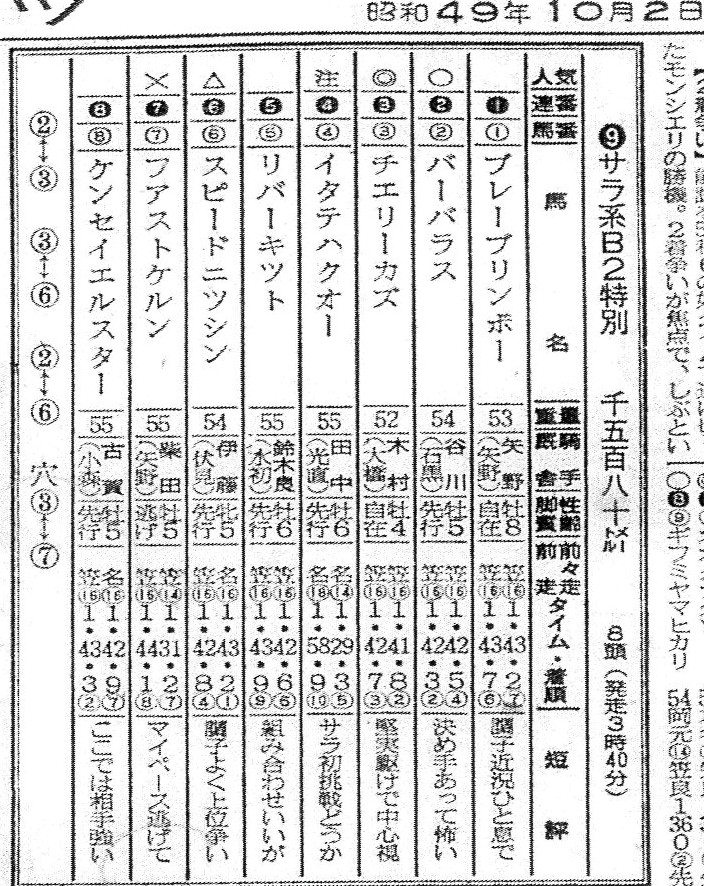 昭和49年10月2日
たモンシエリの勝機。2着争いが焦点で、しぶとい
○❽⑨ギフミヤマヒカリ 54岡元⑭笠良1360②先
❾サラ系B2特別 千五百八十メートル 8頭(発走3時40分)
人気 連番 馬番 馬名 重量 騎手 厩舎 性齢 脚質 前々走 前走 タイム・着順 短評
❶ ① ブレーブリンボー 53 矢野(矢野) 牡8 自在 笠⑯1・43・2⑦ 笠⑯1・43・7⑥ 調子近況ひと息で
○ ❷ ② バーバラス 54 谷川(石黒) 牡5 先行 笠⑯1・42・5④ 笠⑯1・42・3② 決め手あって怖い
◎ ❸ ③ チエリーカズ 52 木村(大橋) 牡4 自在 笠⑯1・41・8② 笠⑯1・42・7③ 堅実駆けで中心視
注 ❹ ④ イタテハクオー 55 田中(光直) 牡6 先行 名⑭1・29・3⑤ 名⑱1・58・9⑩ サラ初挑戦どうか
❺ ⑤ リバーキツト 55 鈴木良(水初) 牡6 先行 笠⑯1・42・6⑤ 笠⑯1・43・9⑨ 組み合わせいいが
△ ❻ ⑥ スピードニツシン 54 伊藤(伏見) 牝5 先行 名⑯1・43・2① 笠⑯1・42・8④ 調子よく上位争い
× ❼ ⑦ フアストケルン 55 柴田(矢野) 牡5 逃げ 笠⑭1・31・2⑦ 笠⑯1・44・1⑧ マイペース逃げて
❽ ⑧ ケンセイエルスター 55 古賀(小森) 牡5 先行 名⑯1・42・9⑦ 笠⑯1・43・3② ここでは相手強い
②↔③ ③↔⑥ ②↔⑥ 穴③↔⑦